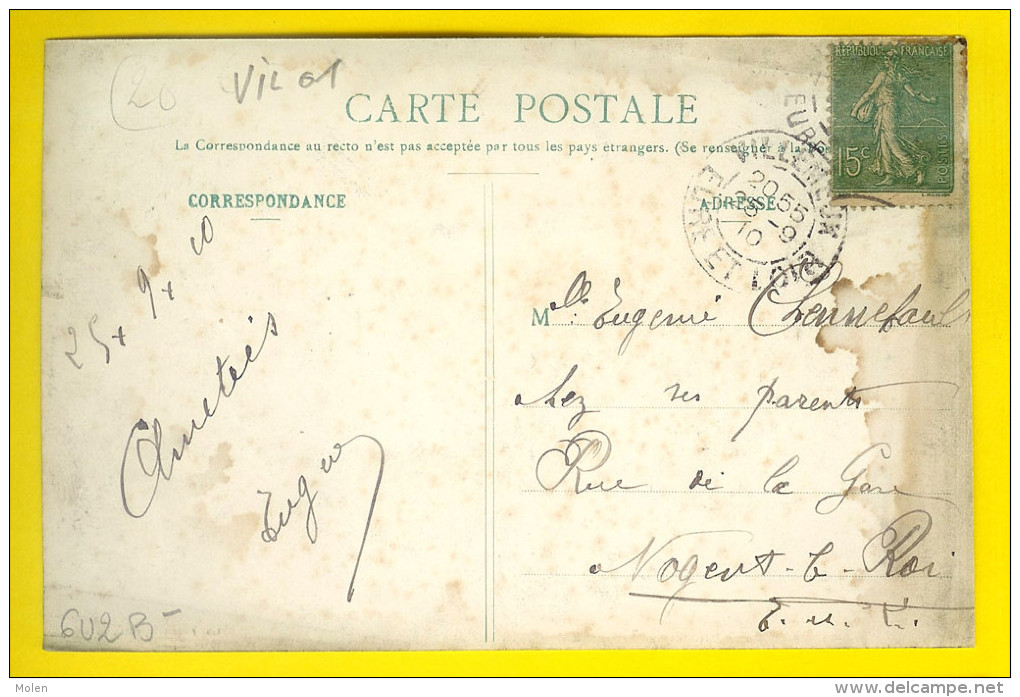 (20
VIL 01
RÉPUBLIQUE FRANÇAISE
15c
POSTES
CARTE POSTALE
La Correspondance au recto n'est pas acceptée par tous les pays étrangers. (Se renseigner à la
VILLEMEUX
20 55
25 - 9
10
EURE ET LOIR
CORRESPONDANCE
ADRESSE
25 + 9 + 10
Amitiés
M lle Eugenie Chennefault
chez ses parents
Rue de la Gare
Nogent-le-Roi
E. et L.
602 B-
Molen
www.delcampe.net